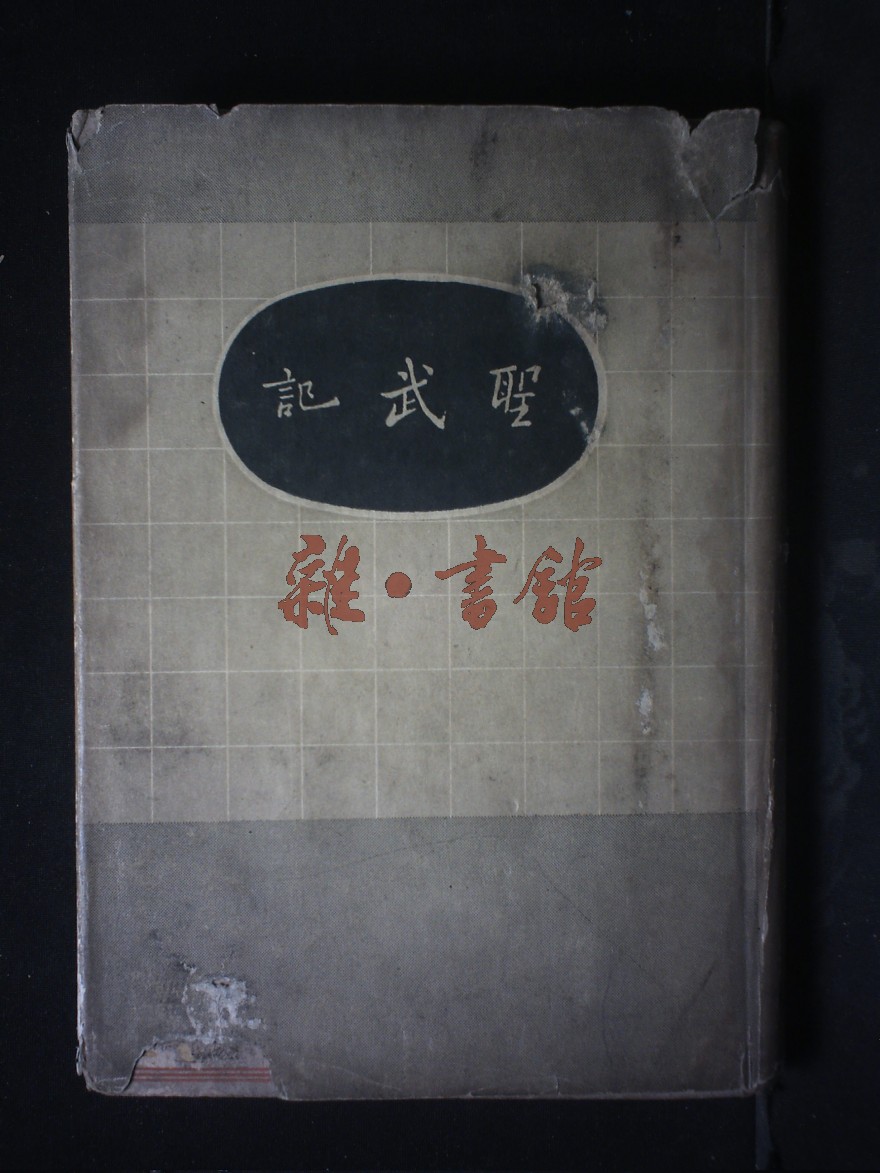 聖武記
雜·書館